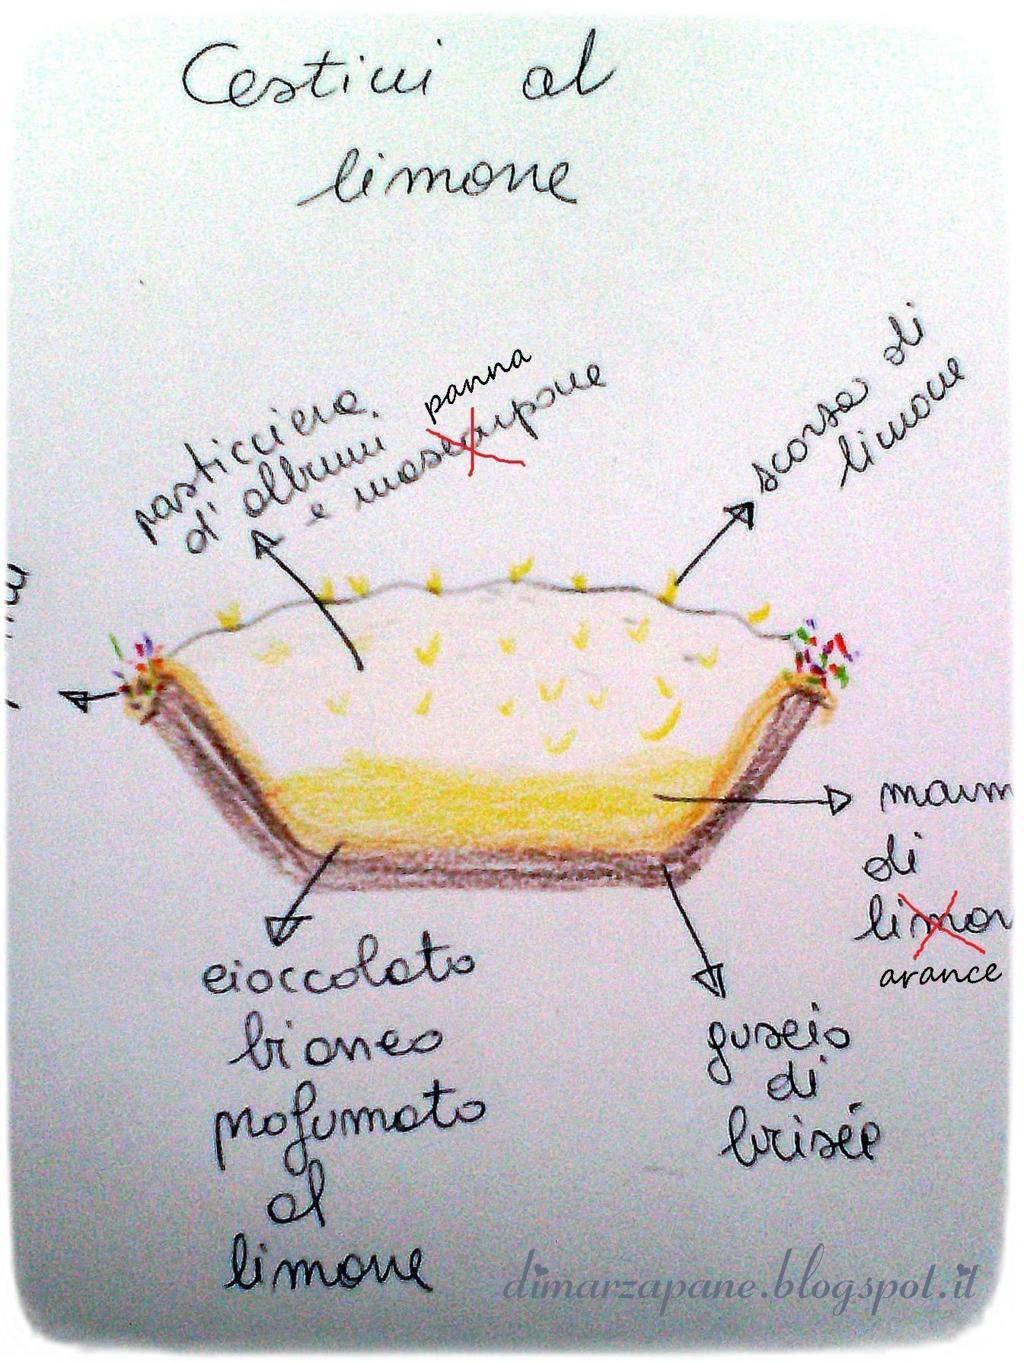 Cestini al
limone
pasticciera
d'albumi
panna
e mascarpone
scorza di
limone
di
arance
cioccolato
bianco
profumato
al
limone
guscio
di
brisée
dimarzapane.blogspot.it